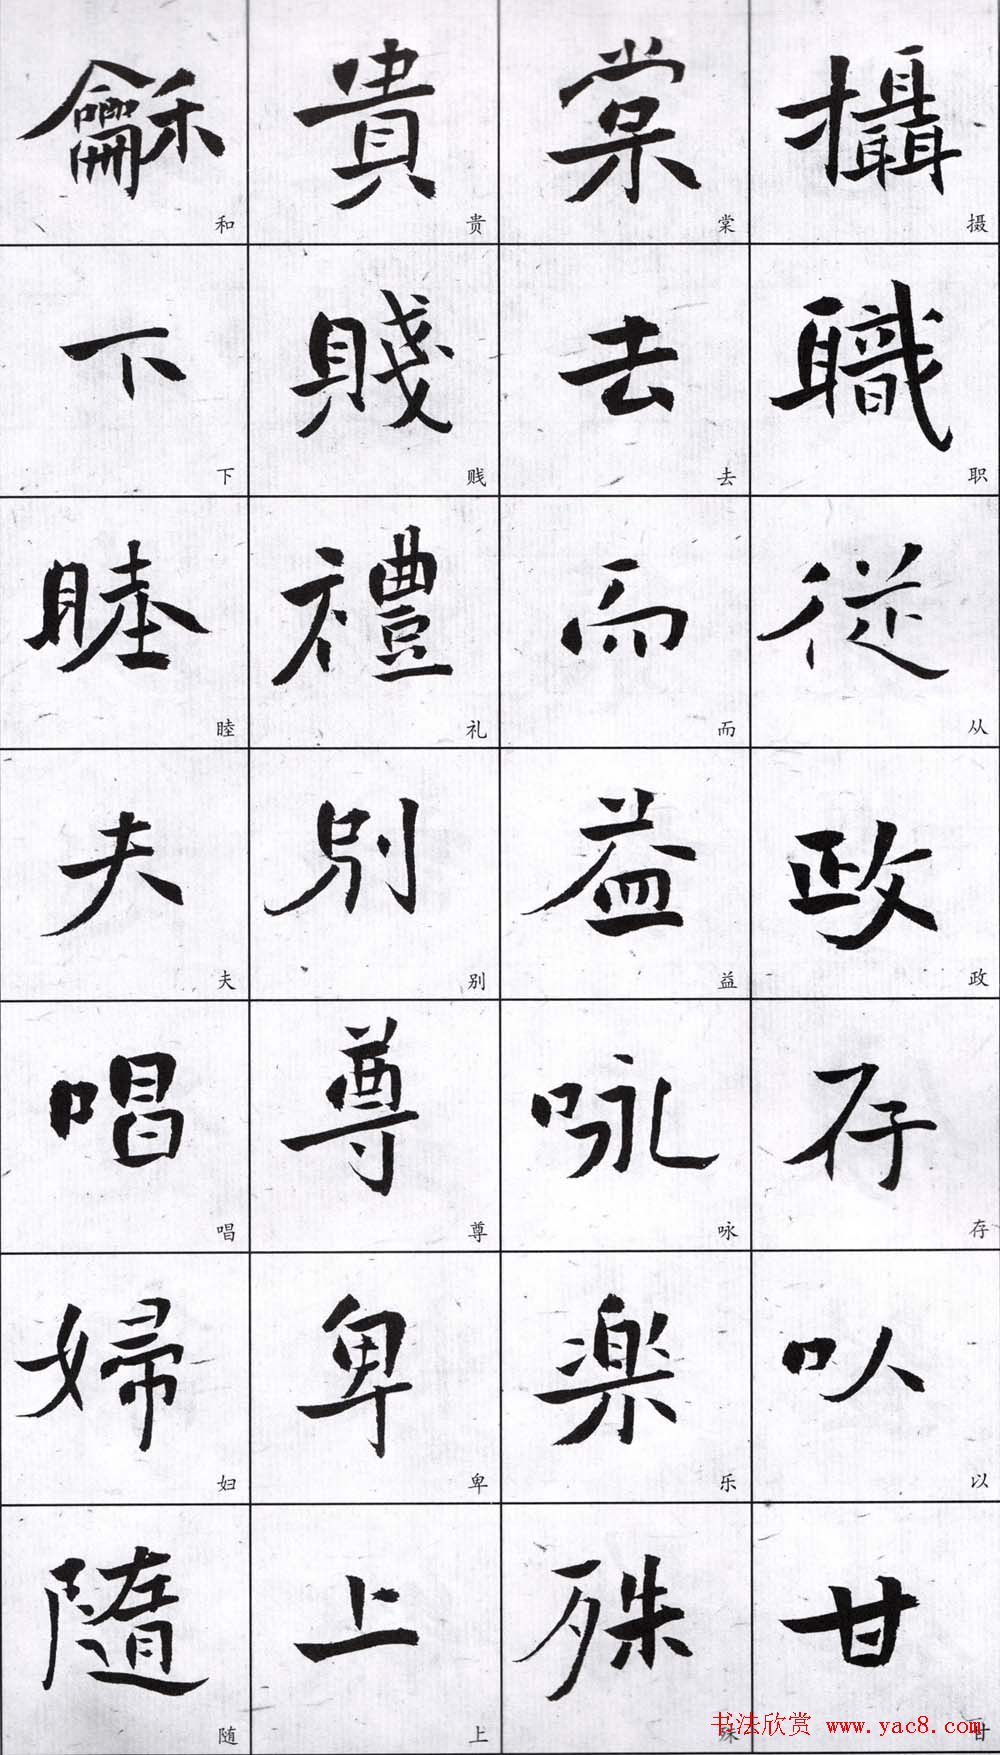 攝職從政存㕥甘
摄职从政存以甘
棠去而益咏楽殊
棠去而益咏乐殊
貴賤禮別尊卑上
贵贱礼别尊卑上
龢下睦夫唱婦隨
和下睦夫唱妇随
书法欣赏 www.yac8.com